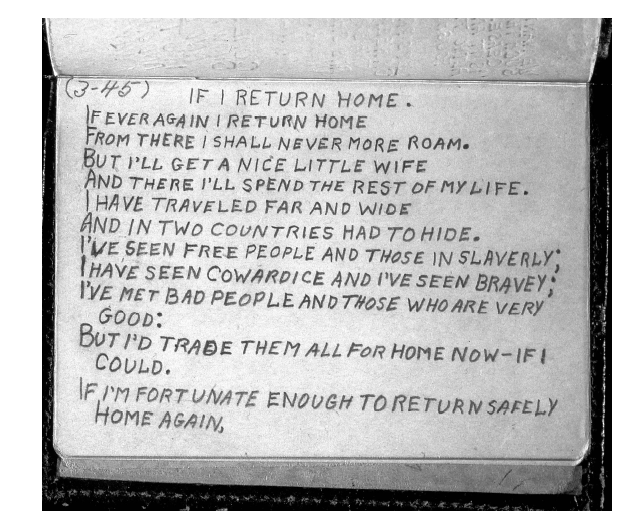 (3-45) IF I RETURN HOME.
IF EVER AGAIN I RETURN HOME
FROM THERE I SHALL NEVER MORE ROAM.
BUT I'LL GET A NICE LITTLE WIFE
AND THERE I'LL SPEND THE REST OF MY LIFE.
I HAVE TRAVELED FAR AND WIDE
AND IN TWO COUNTRIES HAD TO HIDE.
I'VE SEEN FREE PEOPLE AND THOSE IN SLAVERLY;
I HAVE SEEN COWARDICE AND I'VE SEEN BRAVEY;
I'VE MET BAD PEOPLE AND THOSE WHO ARE VERY
GOOD:
BUT I'D TRADE THEM ALL FOR HOME NOW-IF I
COULD.
IF I'M FORTUNATE ENOUGH TO RETURN SAFELY
HOME AGAIN,